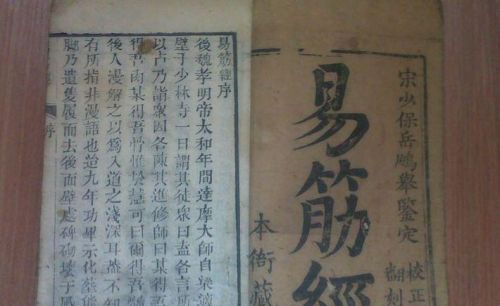 宋少保岳鵬舉鑒定
校正
翻刻
易筋經
本衙藏
易筋經序
後魏孝明帝太和年間達摩大師自梁適
壁于少林寺一日謂其徒眾曰盍各言所
以占乃詣眾因各陳其進修師曰某得吾
得吾肉某得吾骨惟於慧可曰爾得吾
後人漫解之以為入道之淺深耳葢不知
有所指非漫語也迨九年功畢示化葬熊
腳乃遺隻履而去後面壁處碑砌壞于風
序